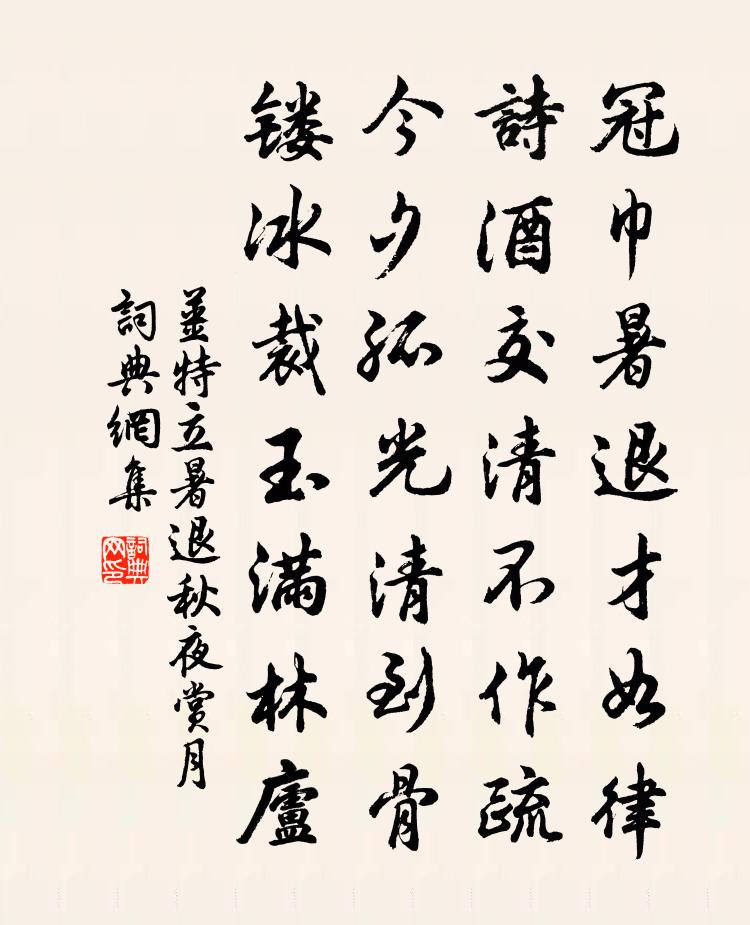 冠巾暑退才如律
詩酒交清不作疏
今夕孤光清到骨
镂冰裁玉满林廬
薑特立暑退秋夜赏月
詞典網集
詞典网印